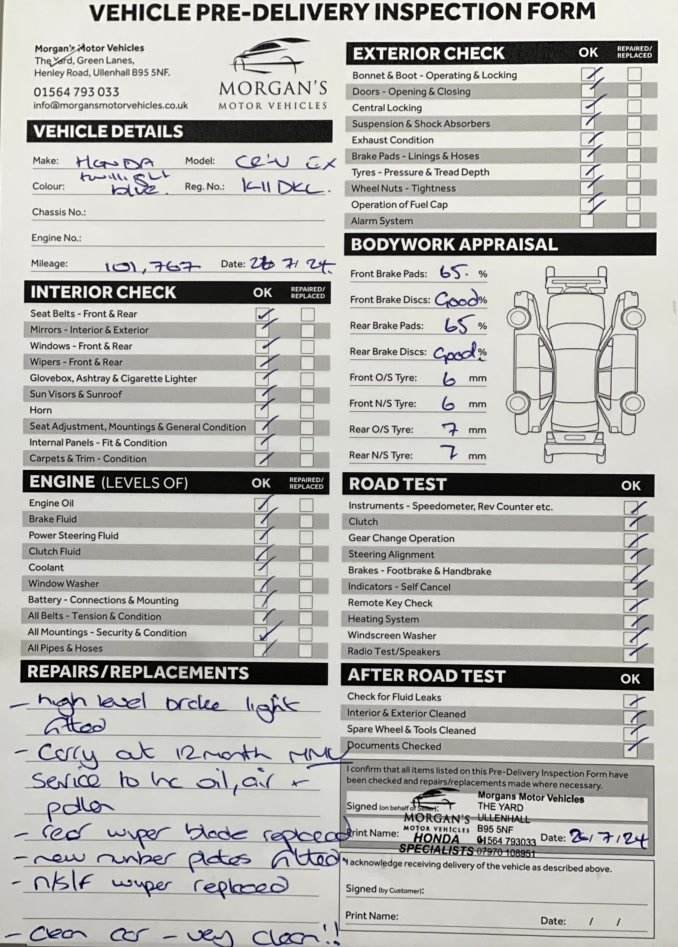 VEHICLE PRE-DELIVERY INSPECTION FORM
Morgan's Motor Vehicles
The Yard, Green Lanes,
Henley Road, Ullenhall B95 5NF.
01564 793 033
info@morgansmotorvehicles.co.uk
MORGAN'S
MOTOR VEHICLES
VEHICLE DETAILS
Make: HONDA Model: CR-V EX
Colour: twilight blue. Reg. No.: K11 DKL
Chassis No.:
Engine No.:
Mileage: 101,767 Date: 26/7/24.
INTERIOR CHECK OK REPAIRED/REPLACED
Seat Belts - Front & Rear
Mirrors - Interior & Exterior
Windows - Front & Rear
Wipers - Front & Rear
Glovebox, Ashtray & Cigarette Lighter
Sun Visors & Sunroof
Horn
Seat Adjustment, Mountings & General Condition
Internal Panels - Fit & Condition
Carpets & Trim - Condition
ENGINE (LEVELS OF) OK REPAIRED/REPLACED
Engine Oil
Brake Fluid
Power Steering Fluid
Clutch Fluid
Coolant
Window Washer
Battery - Connections & Mounting
All Belts - Tension & Condition
All Mountings - Security & Condition
All Pipes & Hoses
REPAIRS/REPLACEMENTS
- high level brake light
fitted
- Carry out 12 month MMV
service to inc oil, air +
pollen
- rear wiper blade replaced
- new number plates fitted
- n/s/f wiper replaced
- clean car - very clean!!
EXTERIOR CHECK OK REPAIRED/REPLACED
Bonnet & Boot - Operating & Locking
Doors - Opening & Closing
Central Locking
Suspension & Shock Absorbers
Exhaust Condition
Brake Pads - Linings & Hoses
Tyres - Pressure & Tread Depth
Wheel Nuts - Tightness
Operation of Fuel Cap
Alarm System
BODYWORK APPRAISAL
Front Brake Pads: 65. %
Front Brake Discs: Good %
Rear Brake Pads: 65 %
Rear Brake Discs: Good %
Front O/S Tyre: 6 mm
Front N/S Tyre: 6 mm
Rear O/S Tyre: 7 mm
Rear N/S Tyre: 7 mm
ROAD TEST OK
Instruments - Speedometer, Rev Counter etc.
Clutch
Gear Change Operation
Steering Alignment
Brakes - Footbrake & Handbrake
Indicators - Self Cancel
Remote Key Check
Heating System
Windscreen Washer
Radio Test/Speakers
AFTER ROAD TEST OK
Check for Fluid Leaks
Interior & Exterior Cleaned
Spare Wheel & Tools Cleaned
Documents Checked
I confirm that all items listed on this Pre-Delivery Inspection Form have
been checked and repairs/replacements made where necessary.
Signed (on behalf of Seller):
Print Name: Date: 26/7/24
Morgans Motor Vehicles
THE YARD
MORGAN'S ULLENHALL
MOTOR VEHICLES B95 5NF
HONDA 01564 793033
SPECIALISTS 07970 108951
I acknowledge receiving delivery of the vehicle as described above.
Signed (by Customer):
Print Name: Date: / /